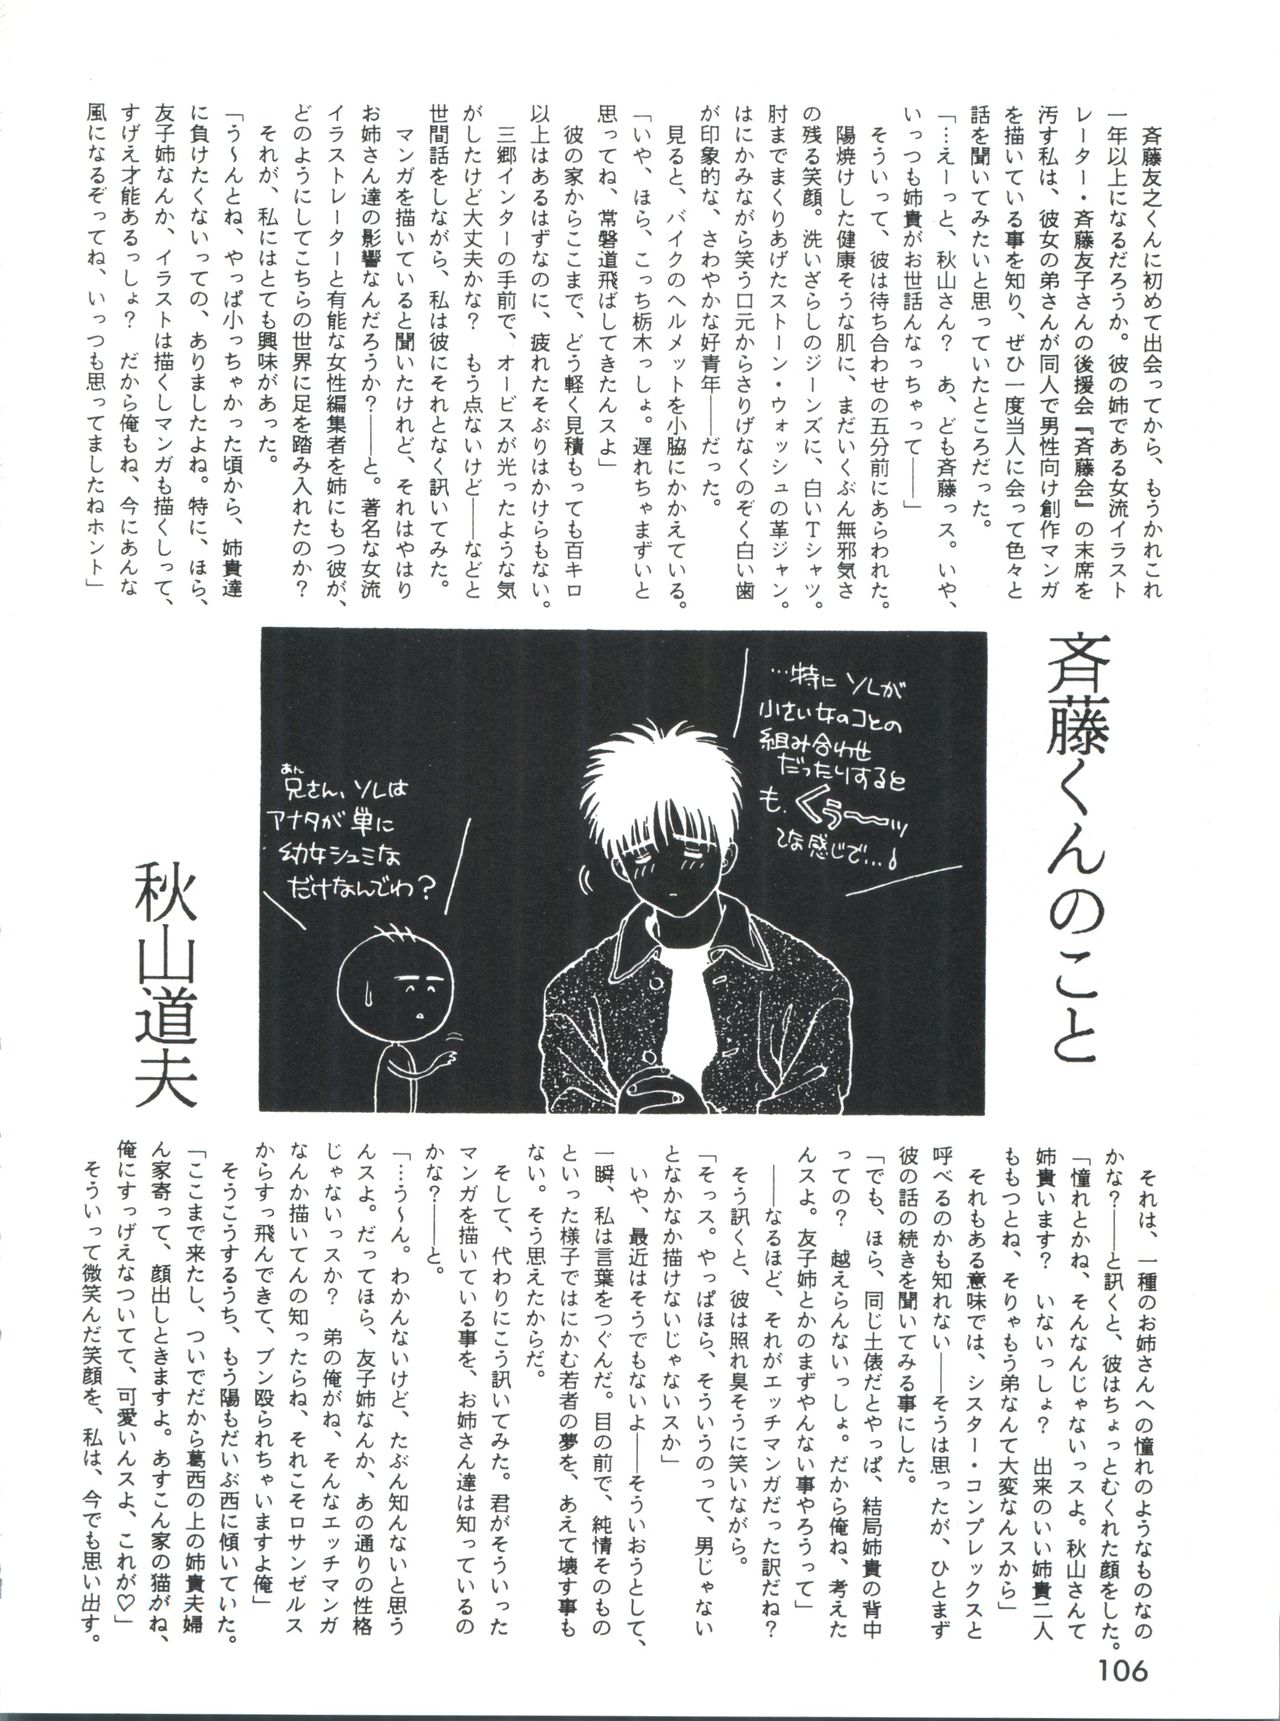 斉藤くんのこと
秋山道夫
　斉藤友之くんに初めて出会ってから、もうかれこれ
一年以上になるだろうか。彼の姉である女流イラスト
レーター・斉藤友子さんの後援会『斉藤会』の末席を
汚す私は、彼女の弟さんが同人で男性向け創作マンガ
を描いている事を知り、ぜひ一度当人に会って色々と
話を聞いてみたいと思っていたところだった。
「…えーっと、秋山さん？　あ、ども斉藤っス。いや、
いっつも姉貴がお世話んなっちゃって――」
　そういって、彼は待ち合わせの五分前にあらわれた。
　陽焼けした健康そうな肌に、まだいくぶん無邪気さ
の残る笑顔。洗いざらしのジーンズに、白いTシャツ。
肘までまくりあげたストーン・ウォッシュの革ジャン。
はにかみながら笑う口元からさりげなくのぞく白い歯
が印象的な、さわやかな好青年――だった。
　見ると、バイクのヘルメットを小脇にかかえている。
「いや、ほら、こっち栃木っしょ。遅れちゃまずいと
思ってね、常磐道飛ばしてきたんスよ」
　彼の家からここまで、どう軽く見積もっても百キロ
以上はあるはずなのに、疲れたそぶりはかけらもない。
　三郷インターの手前で、オービスが光ったような気
がしたけど大丈夫かな？　もう点ないけど――などと
世間話をしながら、私は彼にそれとなく訊いてみた。
　マンガを描いていると聞いたけれど、それはやはり
お姉さん達の影響なんだろうか？――と。著名な女流
イラストレーターと有能な女性編集者を姉にもつ彼が、
どのようにしてこちらの世界に足を踏み入れたのか？
　それが、私にはとても興味があった。
「う～んとね、やっぱ小っちゃかった頃から、姉貴達
に負けたくないっての、ありましたよね。特に、ほら、
友子姉なんか、イラストは描くしマンガも描くしって、
すげえ才能あるっしょ？　だから俺もね、今にあんな
風になるぞってね、いっつも思ってましたねホント」
…特にソレが
小さい女のコとの
組み合わせ
だったりすると
も、くぅ～～ッ
てな感じで…！
兄さん、ソレは
あん
アナタが単に
幼女シュミな
だけなんでわ？
　それは、一種のお姉さんへの憧れのようなものなの
かな？――と訊くと、彼はちょっとむくれた顔をした。
「憧れとかね、そんなんじゃないっスよ。秋山さんて
姉貴います？　いないっしょ？　出来のいい姉貴二人
ももつとね、そりゃもう弟なんて大変なんスから」
　それもある意味では、シスター・コンプレックスと
呼べるのかも知れない――そうは思ったが、ひとまず
彼の話の続きを聞いてみる事にした。
「でも、ほら、同じ土俵だとやっぱ、結局姉貴の背中
っての？　越えらんないっしょ。だから俺ね、考えた
んスよ。友子姉とかのまずやんない事やろうって」
　――なるほど、それがエッチマンガだった訳だね？
　そう訊くと、彼は照れ臭そうに笑いながら。
「そっス。やっぱほら、そういうのって、男じゃない
となかなか描けないじゃないスか」
　いや、最近はそうでもないよ――そういおうとして、
一瞬、私は言葉をつぐんだ。目の前で、純情そのもの
といった様子ではにかむ若者の夢を、あえて壊す事も
ない。そう思えたからだ。
　そして、代わりにこう訊いてみた。君がそういった
マンガを描いている事を、お姉さん達は知っているの
かな？――と。
「…う～ん。わかんないけど、たぶん知んないと思う
んスよ。だってほら、友子姉なんか、あの通りの性格
じゃないっスか？　弟の俺がね、そんなエッチマンガ
なんか描いてんの知ったらね、それこそロサンゼルス
からすっ飛んできて、ブン殴られちゃいますよ俺」
　そうこうするうち、もう陽もだいぶ西に傾いていた。
「ここまで来たし、ついでだから葛西の上の姉貴夫婦
ん家寄って、顔出しときますよ。あすこん家の猫がね、
俺にすっげえなついてて、可愛いんスよ、これが♡」
　そういって微笑んだ笑顔を、私は、今でも思い出す。
106